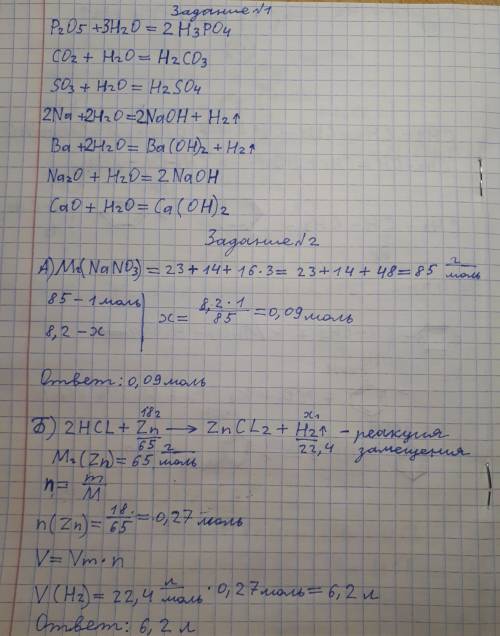 Задание №1
P2O5 + 3H2O = 2H3PO4
CO2 + H2O = H2CO3
SO3 + H2O = H2SO4
2Na + 2H2O = 2NaOH + H2↑
Ba + 2H2O = Ba(OH)2 + H2↑
Na2O + H2O = 2NaOH
CaO + H2O = Ca(OH)2
Задание №2
А) Mr(NaNO3) = 23 + 14 + 16·3 = 23 + 14 + 48 = 85 г/моль
85 - 1 моль
8,2 - x
x = 8,2·1/85 = 0,09 моль
Ответ: 0,09 моль
18г x л
Б) 2HCL + Zn → ZnCL2 + H2↑ - реакция
65 22,4 замещения
Mr(Zn) = 65 г/моль
n = m/M
n(Zn) = 18/65 = 0,27 моль
V = Vm · n
V(H2) = 22,4 л/моль · 0,27 моль = 6,2 л
Ответ: 6,2 л